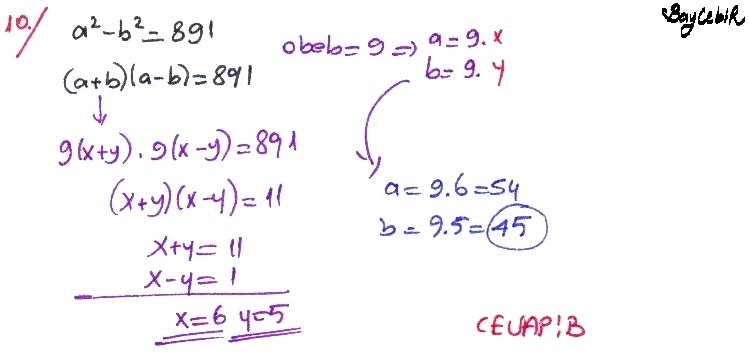 BayCebiR
10./ a² - b² = 891
(a+b)(a-b) = 891
obeb = 9 => a = 9.x
b = 9.y
9(x+y).9(x-y) = 891
(x+y)(x-y) = 11
x+y = 11
x-y = 1
x=6 y=5
a = 9.6 = 54
b = 9.5 = 45
CEVAP!B